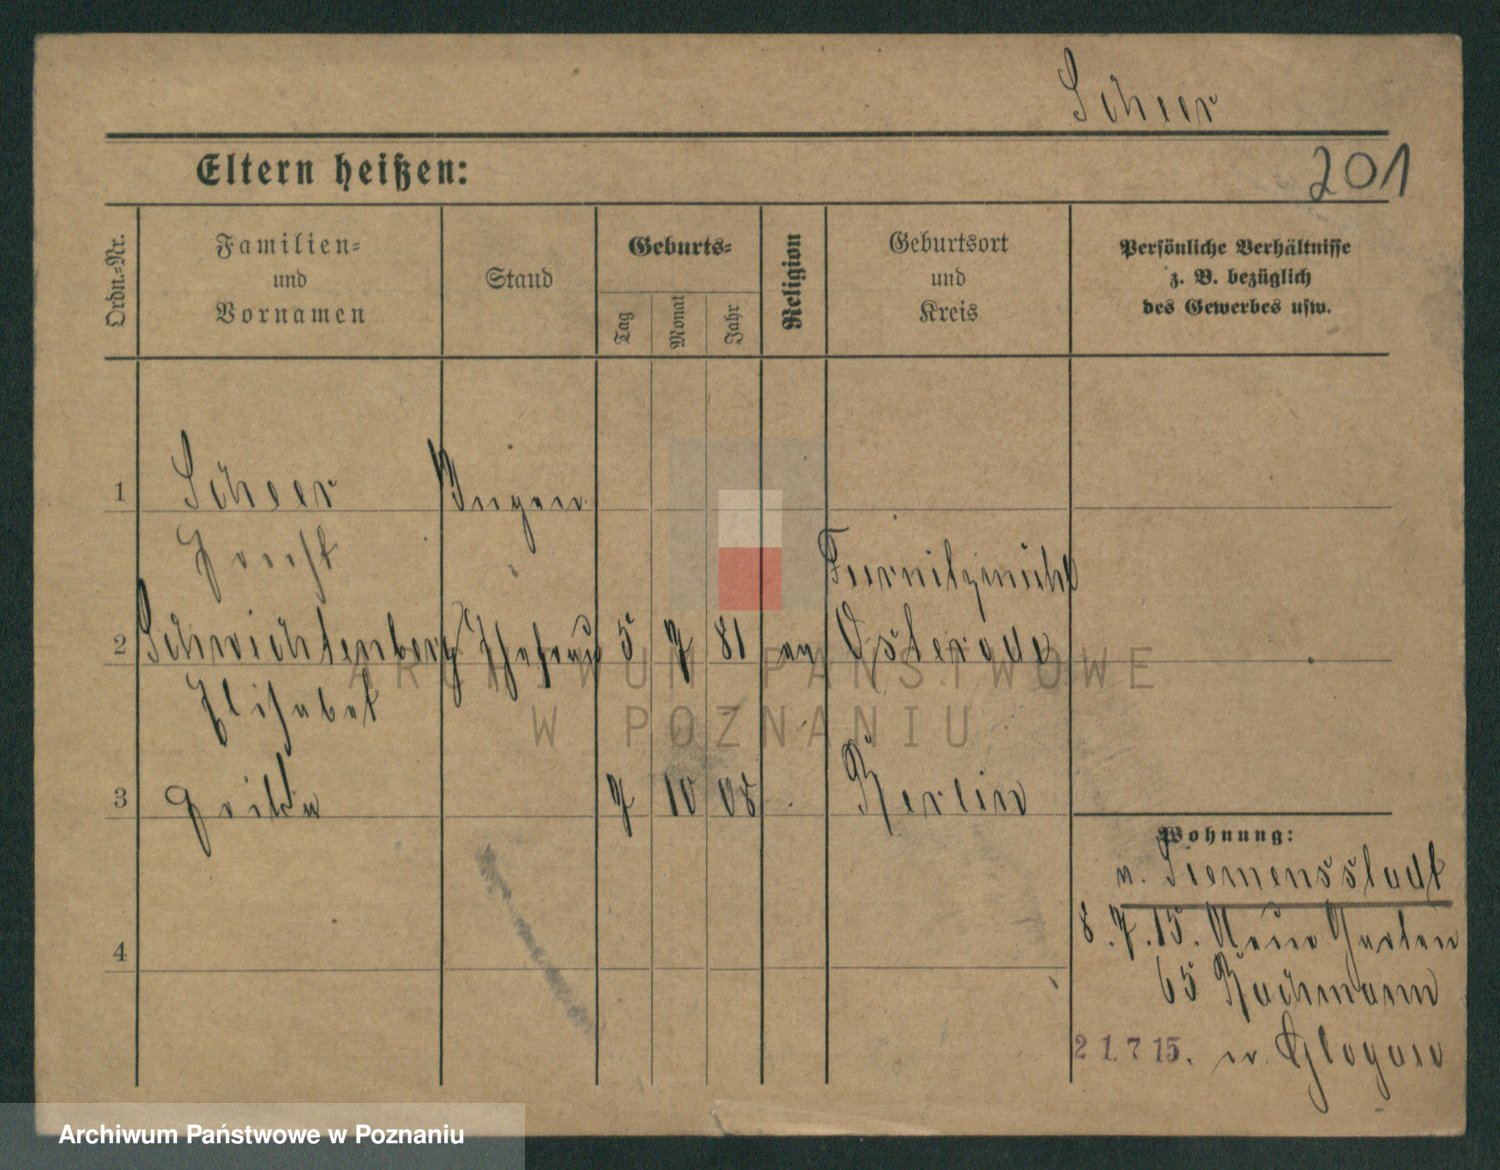 Scheer
Eltern heißen:
201
Ordn.-Nr.
Familien-
und
Vornamen
Stand
Geburts-
Tag
Monat
Jahr
Religion
Geburtsort
und
Kreis
Persönliche Verhältnisse
z. B. bezüglich
des Gewerbes usw.
1
Scheer
Ingen
Horst
2
Schwichtenberg Ehefrau 5 7 81 ev Osterode
Elisabet
3
7 10 08 Berlin
4
Wohnung:
v. Siemensstadt
8.7.15. Neue Garten
65 Bachmann
21.7 15. n. Glogau
ARCHIWUM PAŃSTWOWE
W POZNANIU
Archiwum Państwowe w Poznaniu